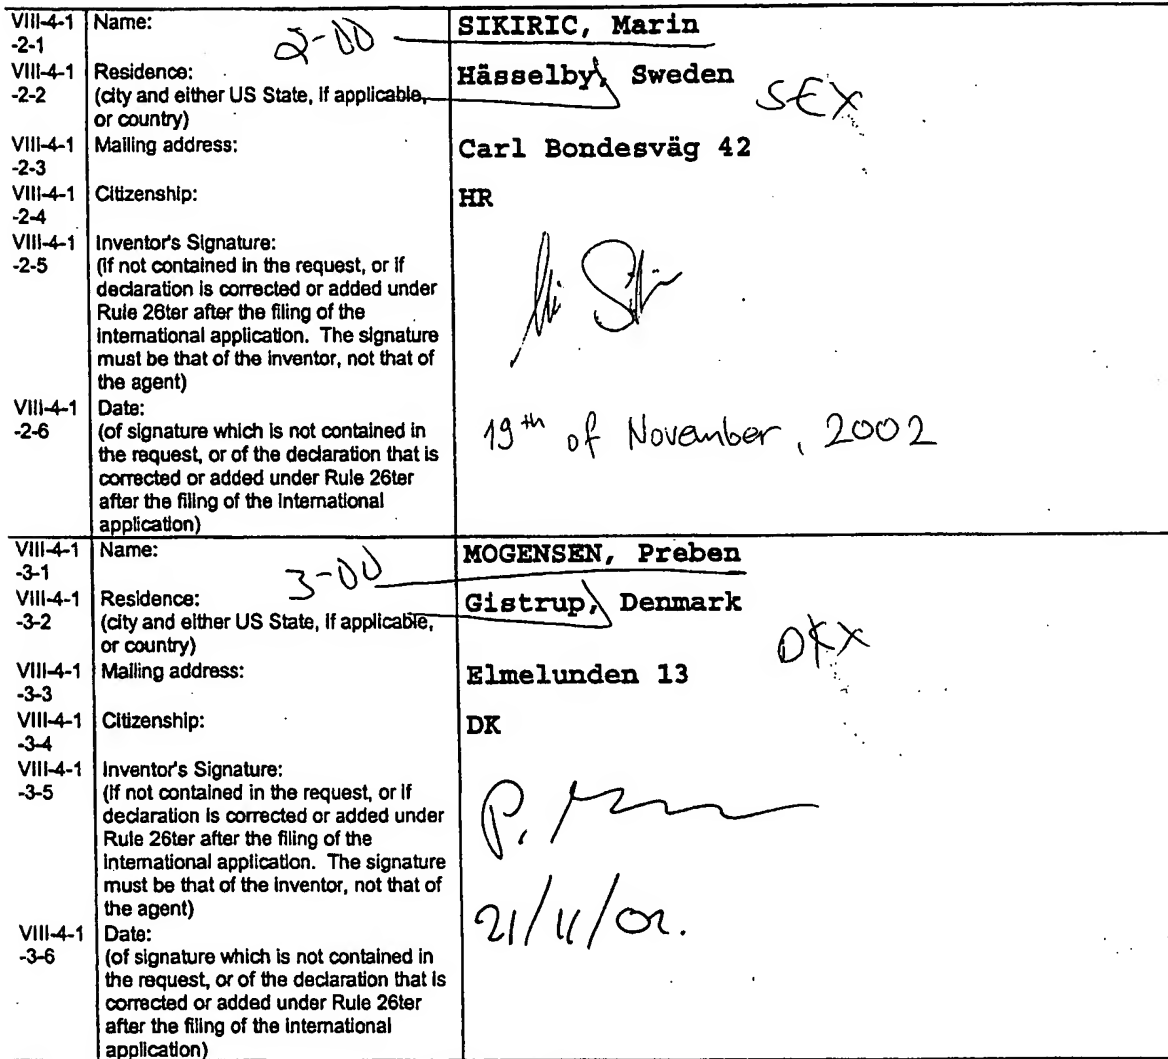 VIII-4-1 Name: 2-00 SIKIRIC, Marin
-2-1
VIII-4-1 Residence: Hässelby, Sweden
-2-2 (city and either US State, if applicable, SEX
or country)
VIII-4-1 Mailing address: Carl Bondesväg 42
-2-3
VIII-4-1 Citizenship: HR
-2-4
VIII-4-1 Inventor's Signature:
-2-5 (if not contained in the request, or if
declaration is corrected or added under
Rule 26ter after the filing of the
international application. The signature
must be that of the inventor, not that of
the agent)
VIII-4-1 Date: 19th of November, 2002
-2-6 (of signature which is not contained in
the request, or of the declaration that is
corrected or added under Rule 26ter
after the filing of the international
application)
VIII-4-1 Name: 3-00 MOGENSEN, Preben
-3-1
VIII-4-1 Residence: Gistrup, Denmark
-3-2 (city and either US State, if applicable, DKX
or country)
VIII-4-1 Mailing address: Elmelunden 13
-3-3
VIII-4-1 Citizenship: DK
-3-4
VIII-4-1 Inventor's Signature:
-3-5 (if not contained in the request, or if
declaration is corrected or added under
Rule 26ter after the filing of the
international application. The signature
must be that of the inventor, not that of
the agent)
21/11/02.
VIII-4-1 Date:
-3-6 (of signature which is not contained in
the request, or of the declaration that is
corrected or added under Rule 26ter
after the filing of the international
application)